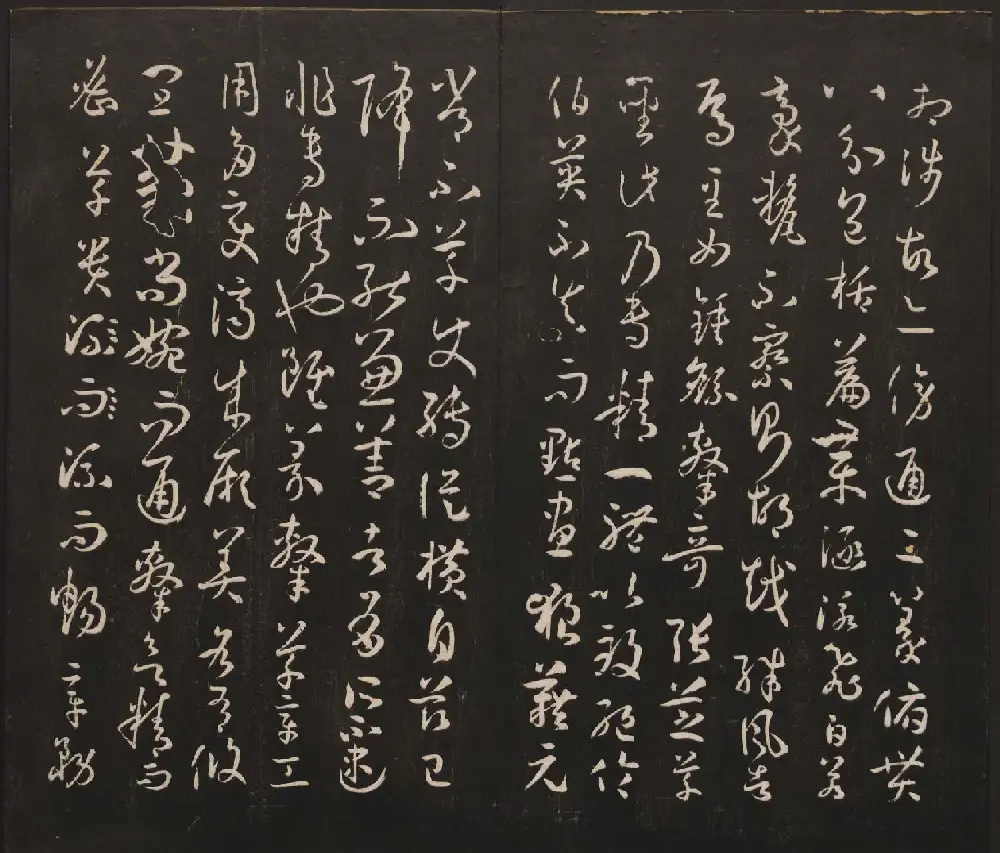 相涉故亦傍通二篆俯貫
八分包括篇章涵泳飛白若
豪氂不察則胡越殊風者
焉至如鍾繇隸奇張芝草
聖此乃專精一體以致絕倫
伯英不真而點畫狼藉元
常不草使轉縱橫自茲已
降不能兼善者有所不逮
非專精也雖篆隸草章工
用多變濟成厥美各有攸
宜篆尚婉而通隸欲精而
密草貴流而暢章務